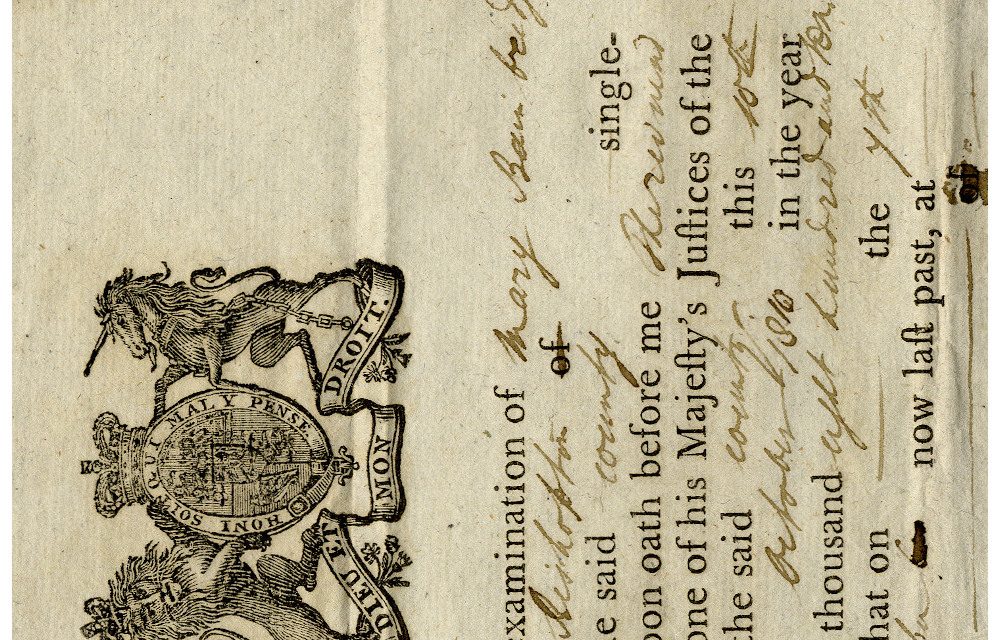 HONI SOIT QUI MAL Y PENSE
DIEU ET MON DROIT.
xamination of Mary Bainbridg
Bishopton of
e said county single-
oon oath before me
one of his Majeſty's Juſtices of the
the said county this 10th
October 1810 in the year
thousand eight hundred and
hat on the 7th
now laſt past, at
of